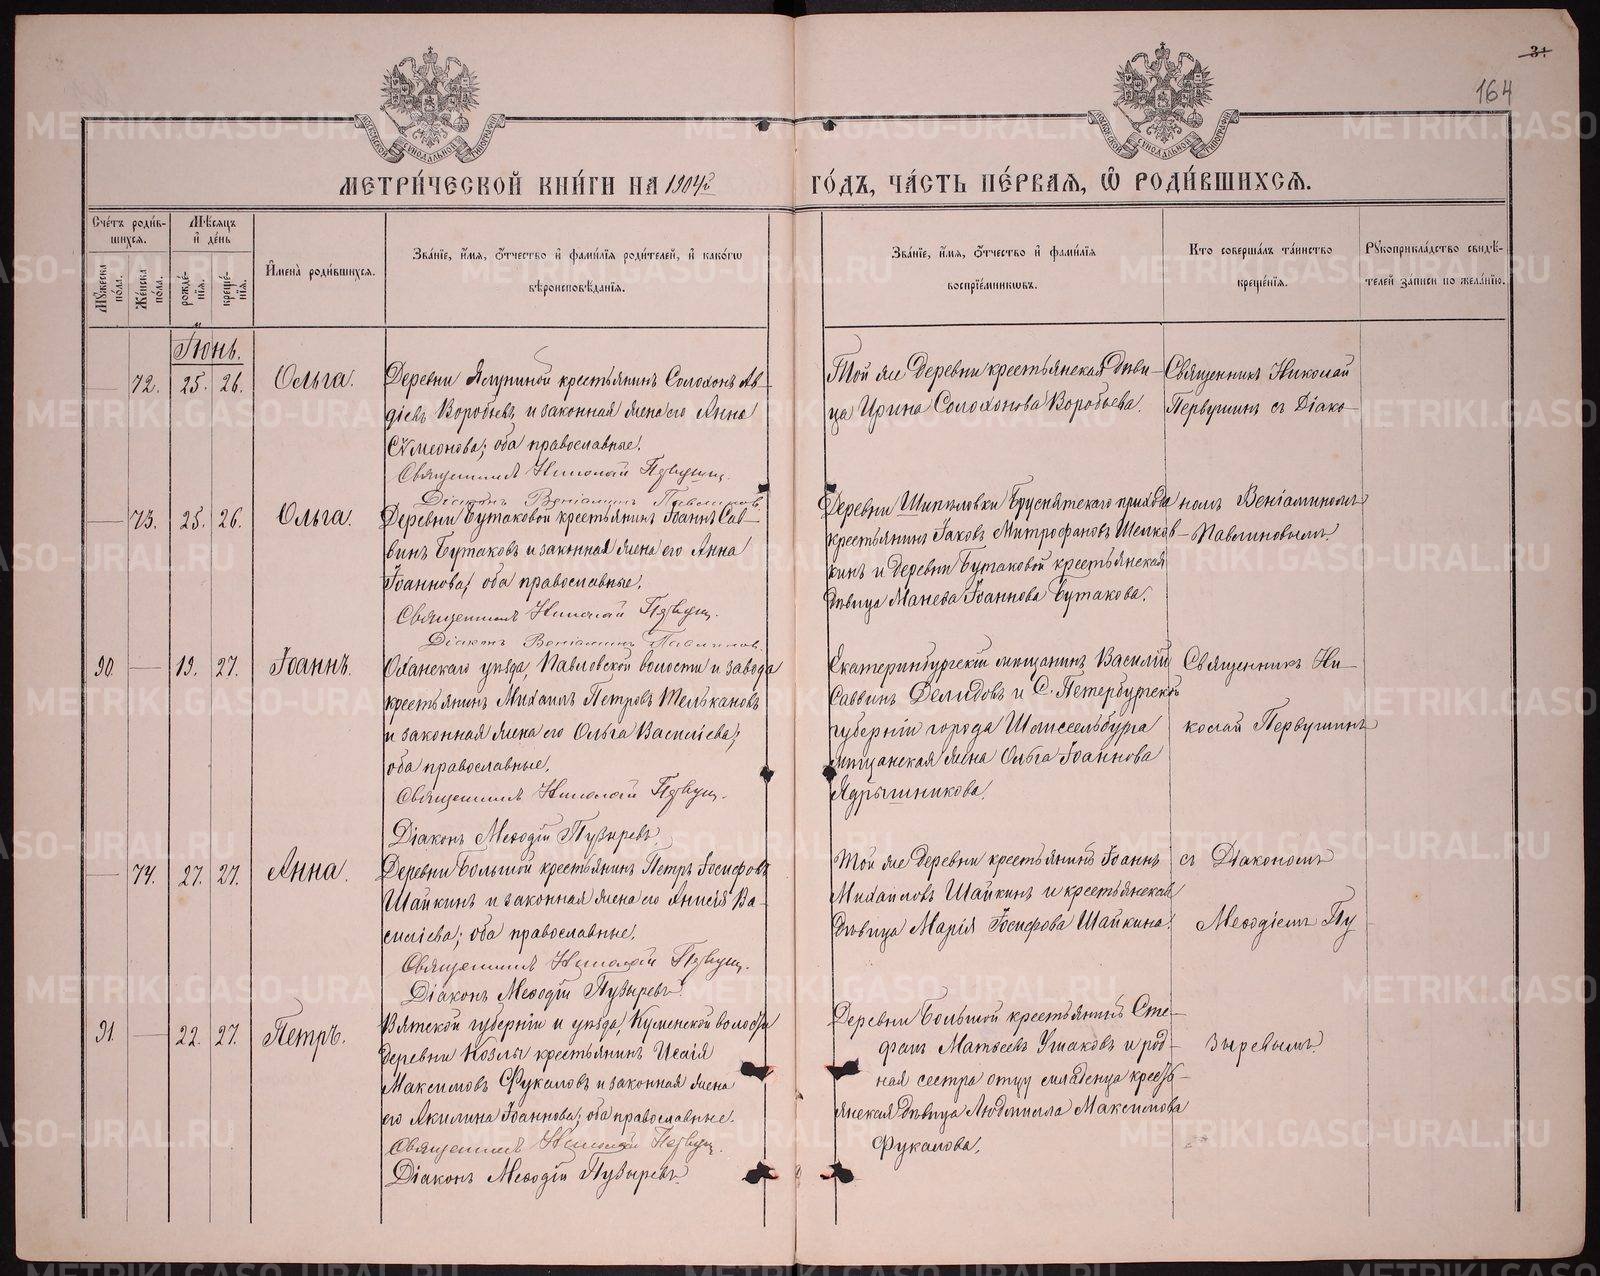 164
МЕТРИ́ЧЕСКОЙ КНИ́ГИ НА 1904й
ГО́ДЪ, ЧА́СТЬ ПЕ́РВАѦ, Ѡ҆ РОДИ́ВШИХСѦ.
Сче́тъ роди́в-
шихсѧ.
Мꙋ́жеска
по́ла.
Же́нска
по́ла.
Мѣ́сѧцъ
и҆ де́нь
рожде́-
нїѧ.
креще́-
нїѧ.
И҆мена̀ роди́вшихсѧ.
Зва́нїе, и҆́мѧ, ѻ҆́тчество и҆ фами́лїѧ роди́телей, и҆ како́гѡ
вѣроисповѣ́данїѧ.
Зва́нїе, и҆́мѧ, ѻ҆́тчество и҆ фами́лїѧ
воспрїе́мникѡвъ.
Кто̀ соверша́лъ та́инство
креще́нїѧ.
Рꙋкоприкла́дство свидѣ́-
телей за́писи по жела́нїю.
Іюнь.
72. 25. 26. Ольга.
Деревни Ялуниной крестьянинъ Соломонъ Ав-
діевъ Воробьевъ и законная жена его Анна
Сѵмеонова; оба православные.
Священникъ Николай Первушинъ.
Діаконъ Веніаминъ Павлиновъ.
Той же деревни крестьянская дѣви-
ца Ирина Соломонова Воробьева.
Священникъ Николай
Первушинъ съ Діако-
73. 25. 26. Ольга.
Деревни Бутаковой крестьянинъ Іоаннъ Сав-
винъ Бутаковъ и законная жена его Анна
Іоаннова; оба православные.
Священникъ Николай Первуш.
Діаконъ Веніаминъ Павлинов.
Деревни Шипиловки Бруснятскаго прихода
крестьянинъ Іаковъ Митрофановъ Шелков-
кинъ и деревни Бутаковой крестьянская
дѣвица Манефа Іоаннова Бутакова.
номъ Веніаминомъ
Павлиновымъ
90. 19. 27. Іоаннъ.
Оханскаго уѣзда, Павловской волости и завода
крестьянинъ Михаилъ Петровъ Мельсановъ
и законная жена его Ольга Василіева;
оба православные.
Священникъ Николай Первуш.
Діаконъ Меѳодій Пузыревъ
Екатеринбургскій мѣщанинъ Василій
Саввинъ Демидовъ и С. Петербургской
губерніи города Шлиссельбурга
мѣщанская жена Ольга Іоаннова
Ядрышникова.
Священникъ Ни-
колай Первушинъ
74. 27. 27. Анна.
Деревни Большой крестьянинъ Петръ Іосифовъ
Шайкинъ и законная жена его Анисія Ва-
силіева; оба православные.
Священникъ Николай Первуш.
Діаконъ Меѳодій Пузыревъ
Той же деревни крестьянинъ Іоаннъ
Михаиловъ Шайкинъ и крестьянская
дѣвица Марія Іосифова Шайкина.
съ Діакономъ
Меѳодіемъ Пу
91. 22. 27. Петръ.
Вятской губерніи и уѣзда, Куменской волости
деревни Козлы крестьянинъ Исаія
Максимовъ Фукаловъ и законная жена
его Акилина Іоаннова; оба православные.
Священникъ Николай Первуш.
Діаконъ Меѳодій Пузыревъ
Деревни Большой крестьянинъ Сте-
фанъ Матѳеевъ Ушаковъ и род-
ная сестра отцу младенца кресть-
янская дѣвица Людмилла Максимова
Фукалова.
зыревымъ.
METRIKI.GASO-URAL.RU